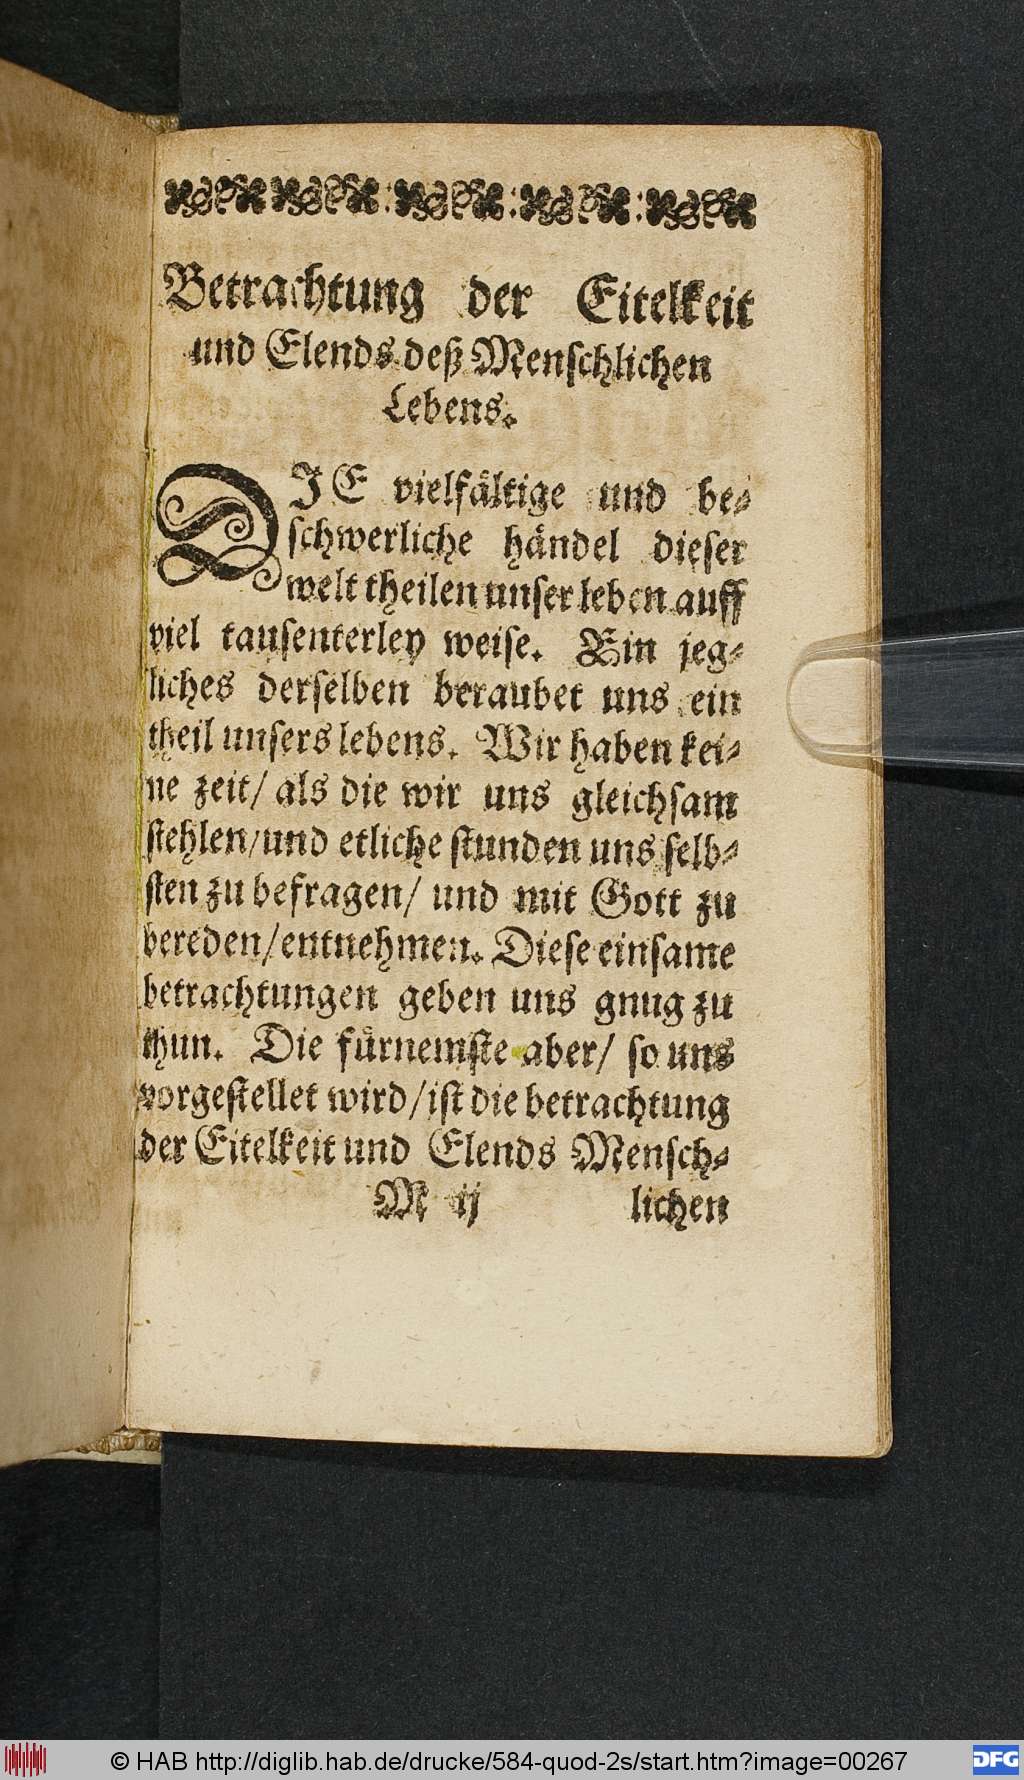 Betrachtung der Eitelkeit
und Elends deß Menschlichen
Lebens.
DIE vielfältige und be-
schwerliche händel dieser
welt theilen unser leben auff
viel tausenterley weise. Ein jeg-
liches derselben beraubet uns ein
theil unsers lebens. Wir haben kei-
ne zeit/ als die wir uns gleichsam
stehlen/und etliche stunden uns selb-
sten zu befragen/ und mit Gott zu
bereden/entnehmen. Diese einsame
betrachtungen geben uns gnug zu
thun. Die fürnemste aber/ so uns
vorgestellet wird/ist die betrachtung
der Eitelkeit und Elends Mensch-
M ij lichen
© HAB http://diglib.hab.de/drucke/584-quod-2s/start.htm?image=00267
DFG